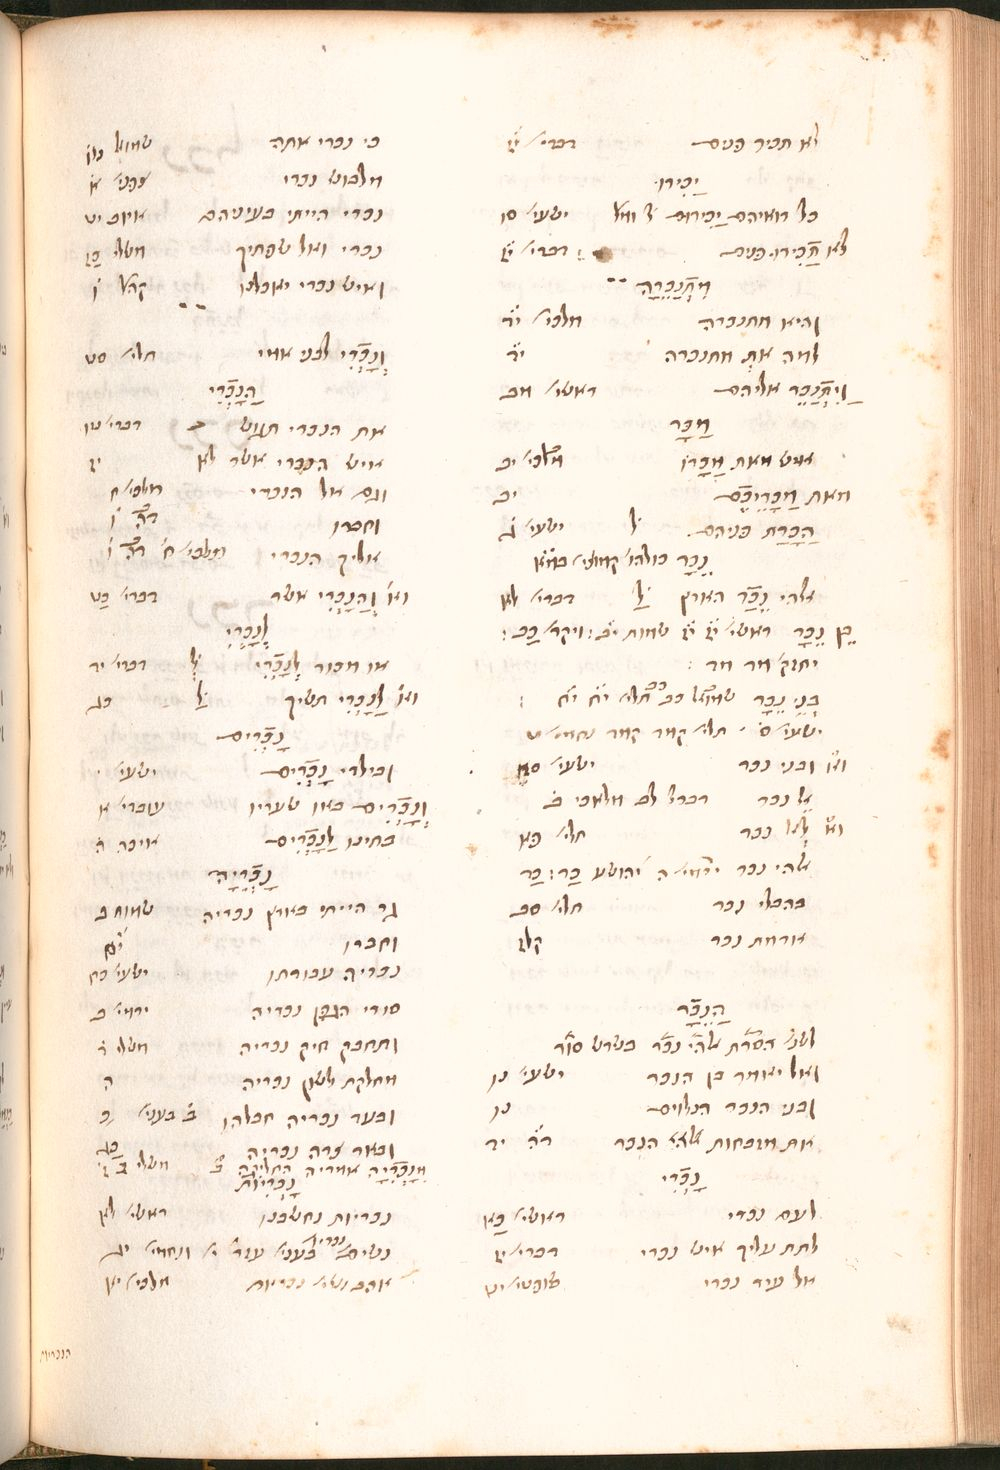 לא תכיר פנים דברי׳ יו
יַכִּירוּ
כל רואיהם יַכִּירוּם ישעי׳ סא
לא תַכִּירוּ פנים דברי׳ א
מִתְנַכֵּרָה
והיא מתנכרה מלכי׳ יד
למה את מתנכרה יד
וַיִּתְנַכֵּר אליהם ראשי׳ מב
מַכָּר
איש מאת מַכָּרוֹ מלכי׳ יב
מאת מַכָּרֵיכֶם יב
הַכָּרַת פניהם ל ישעי׳ ג
נֵכָר
אלהי נֵכַר הארץ ל דברי׳ לא
בן נֵכָר ראשי׳ יז יז שמות יב ויקר׳ כב
יחזק׳ מד מד
בְּנֵי נֵכָר שמואל כב תלי׳ יח יח
ישעי׳ ס
ובני נכר ישעי׳ סא
אל נכר מלאכי ב
לאל נכר תלי׳ פא
אלהי נכר ירמי׳ ה יהושע כד כד
בהבלי נכר
אדמת נכר קלז
הַנֵּכָר
ואל יאמר בן הנכר ישעי׳ נו
ובני הנכר הנלוים נו
את מזבחות הנכר דה יד
נָכְרִי
לעם נכרי ראשי׳ כא
לתת עליך איש נכרי דברי׳ יז
אל עיר נכרי שופטי׳ יט
כי נכרי אתה שמואל
מלבוש נכרי צפני׳ א
נכרי הייתי בעיניהם איוב יט
נכרי ואל שפתיך משלי כז
ואיש נכרי יאכלנו קהל׳ ו
וְנָכְרִי לבני אמי תלי׳ סט
הַנָּכְרִי
את הנכרי תגוש דברי׳ טו
איש הנכרי אשר לא יז
וגם אל הנכרי מלכי׳ ח
וחברו דה ו
אליך הנכרי מלכי׳ ח דה ו
וְהַנָּכְרִי אשר דברי׳ כט
לְנָכְרִי
או מכור לְנָכְרִי ל דברי׳ יד
לַנָּכְרִי תשיך ל כג
נָכְרִים
ובילדי נָכְרִים ישעי׳
וְנָכְרִים באו שעריו עובדי׳ א
בתינו לְנָכְרִים איכה ה
נָכְרִיָּה
גר הייתי בארץ נכריה שמות ב
וחברו יח
נכריה עבודתו ישעי׳ כח
סורי הגפן נכריה ירמי׳ ב
ותחבק חיק נכריה משלי ה
מחלקת לשון נכריה ה
ובעד נכריה חבלהו
ובאר צרה נכריה כג
מִנָּכְרִיָּה אמריה החליקה ב משלי ב ז
נָכְרִיּוֹת
נכריות נחשבנו ראשי׳ לא
נשים
אהב נשי׳ נכריות מלכי׳ יא
הנכריות